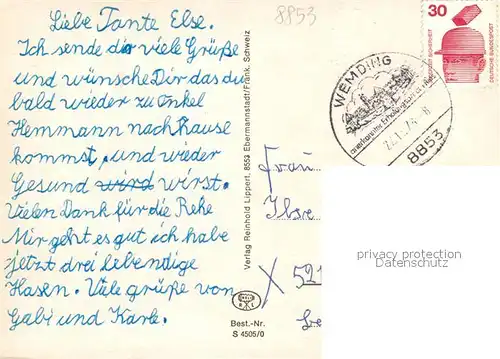 Liebe Tante Else.
Ich sende dir viele Grüße
und wünsche Dir das du
bald wieder zu onkel
Hemmann nach Hause
kommst, und wieder
Gesund wird wirst.
Vielen Dank für die Rehe
Mir geht es gut ich habe
jetzt drei lebendige
Hasen. Viele grüße von
Gabi und Karle.
8853
Verlag Reinhold Lippert, 8553 Ebermannstadt/Fränk. Schweiz
Best.-Nr.
S 4505/0
30
DEUTSCHE BUNDESPOST
WEMDING
8853
Frau
Ilse
X 521
privacy protection
Datenschutz